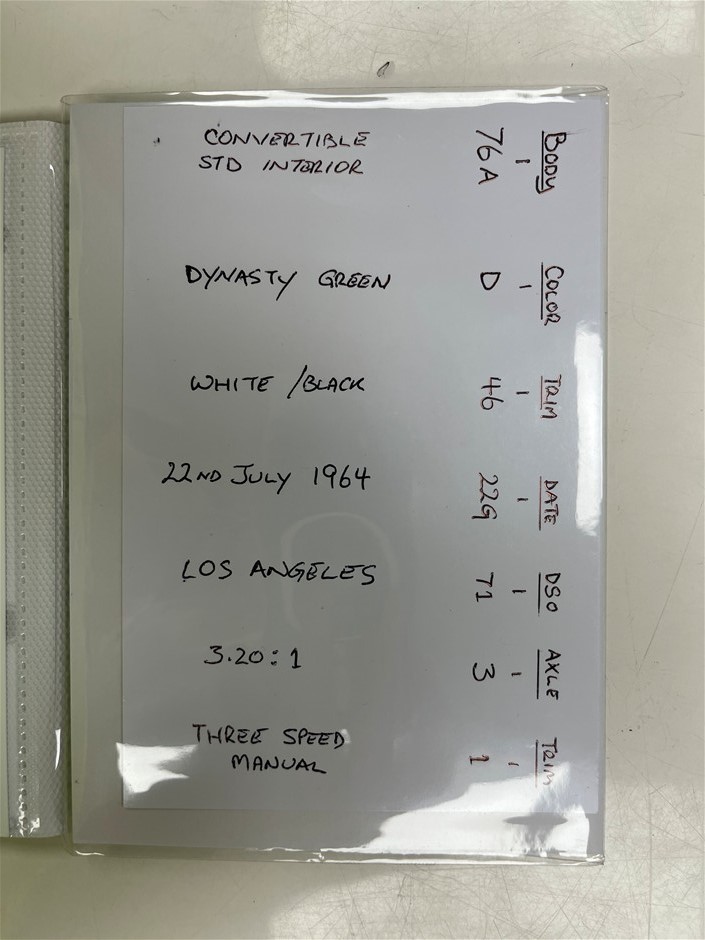 BODY
76A
CONVERTIBLE
STD INTERIOR
COLOR
D
DYNASTY GREEN
TRIM
46
WHITE / BLACK
DATE
22G
22ND JULY 1964
DSO
71
LOS ANGELES
AXLE
3
3.20:1
TRIM
1
THREE SPEED
MANUAL